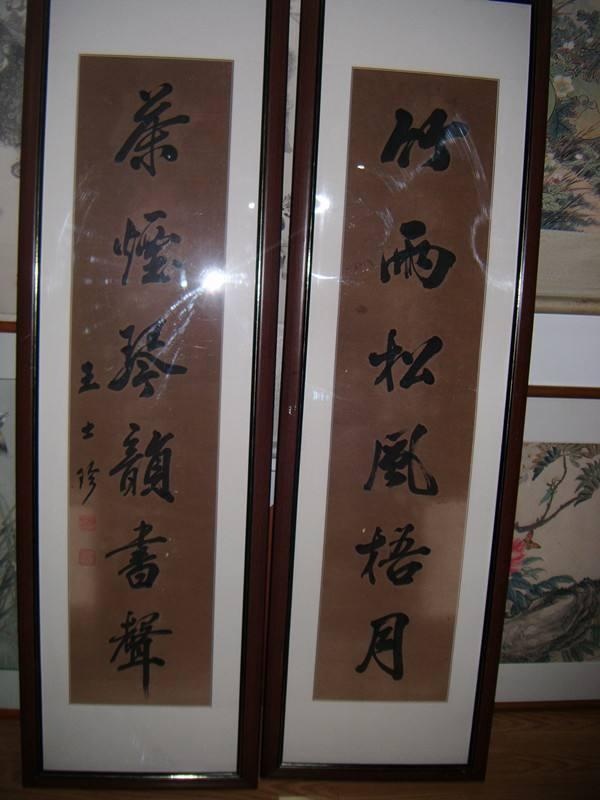 竹雨松風梧月
茶煙琴韻書聲
王士珍